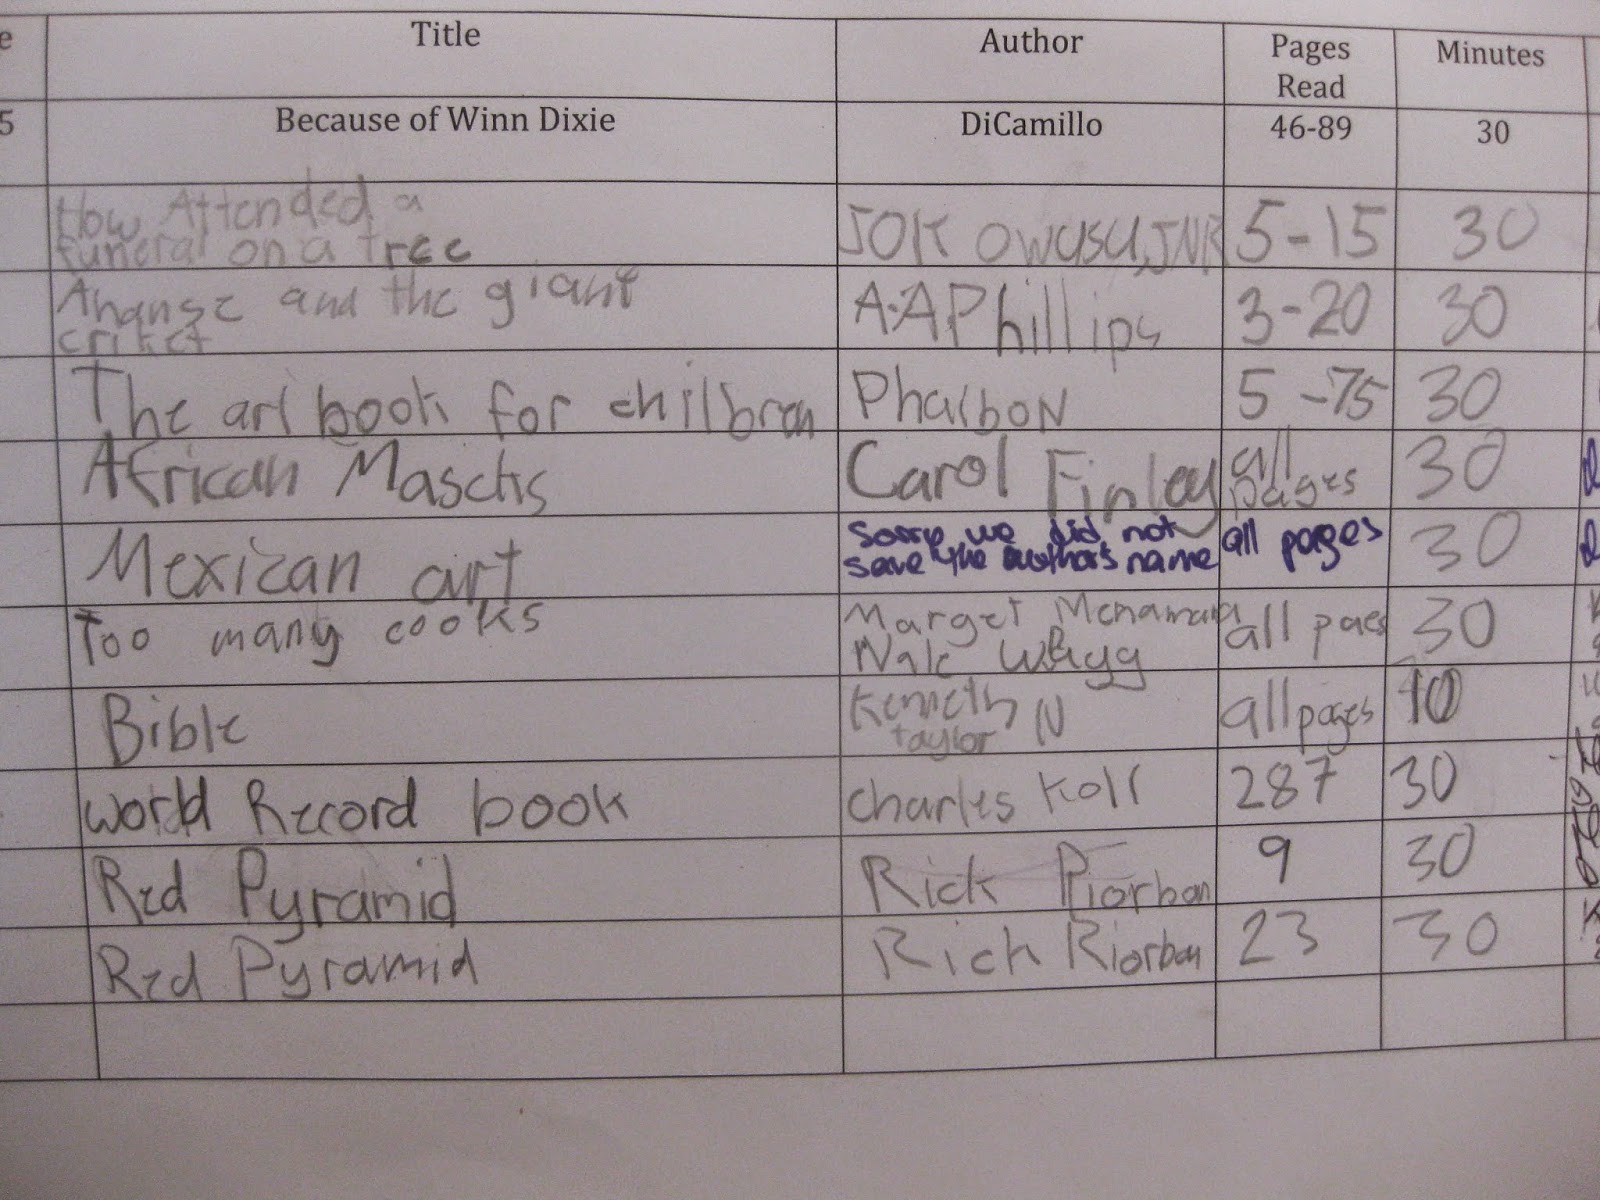 e Title Author Pages Read Minutes
5 Because of Winn Dixie DiCamillo 46-89 30
How Attended a
funeral on a tree JOK Owusu,JNR 5-15 30
Ananse and the giant
criket A.A Phillips 3-20 30
The art book for chilbren Phaibon 5-75 30
African Mascks Carol Finley all pages 30
Mexican art sorry we did not
save the author's name all pages 30
Too many cooks Marget Mcnamara all paes 30
Bible Kenneth N
taylor all pages 10
World Record book charles Koll 287 30
Red Pyramid Rick Riorban 9 30
Red Pyramid Rich Riorban 23 30